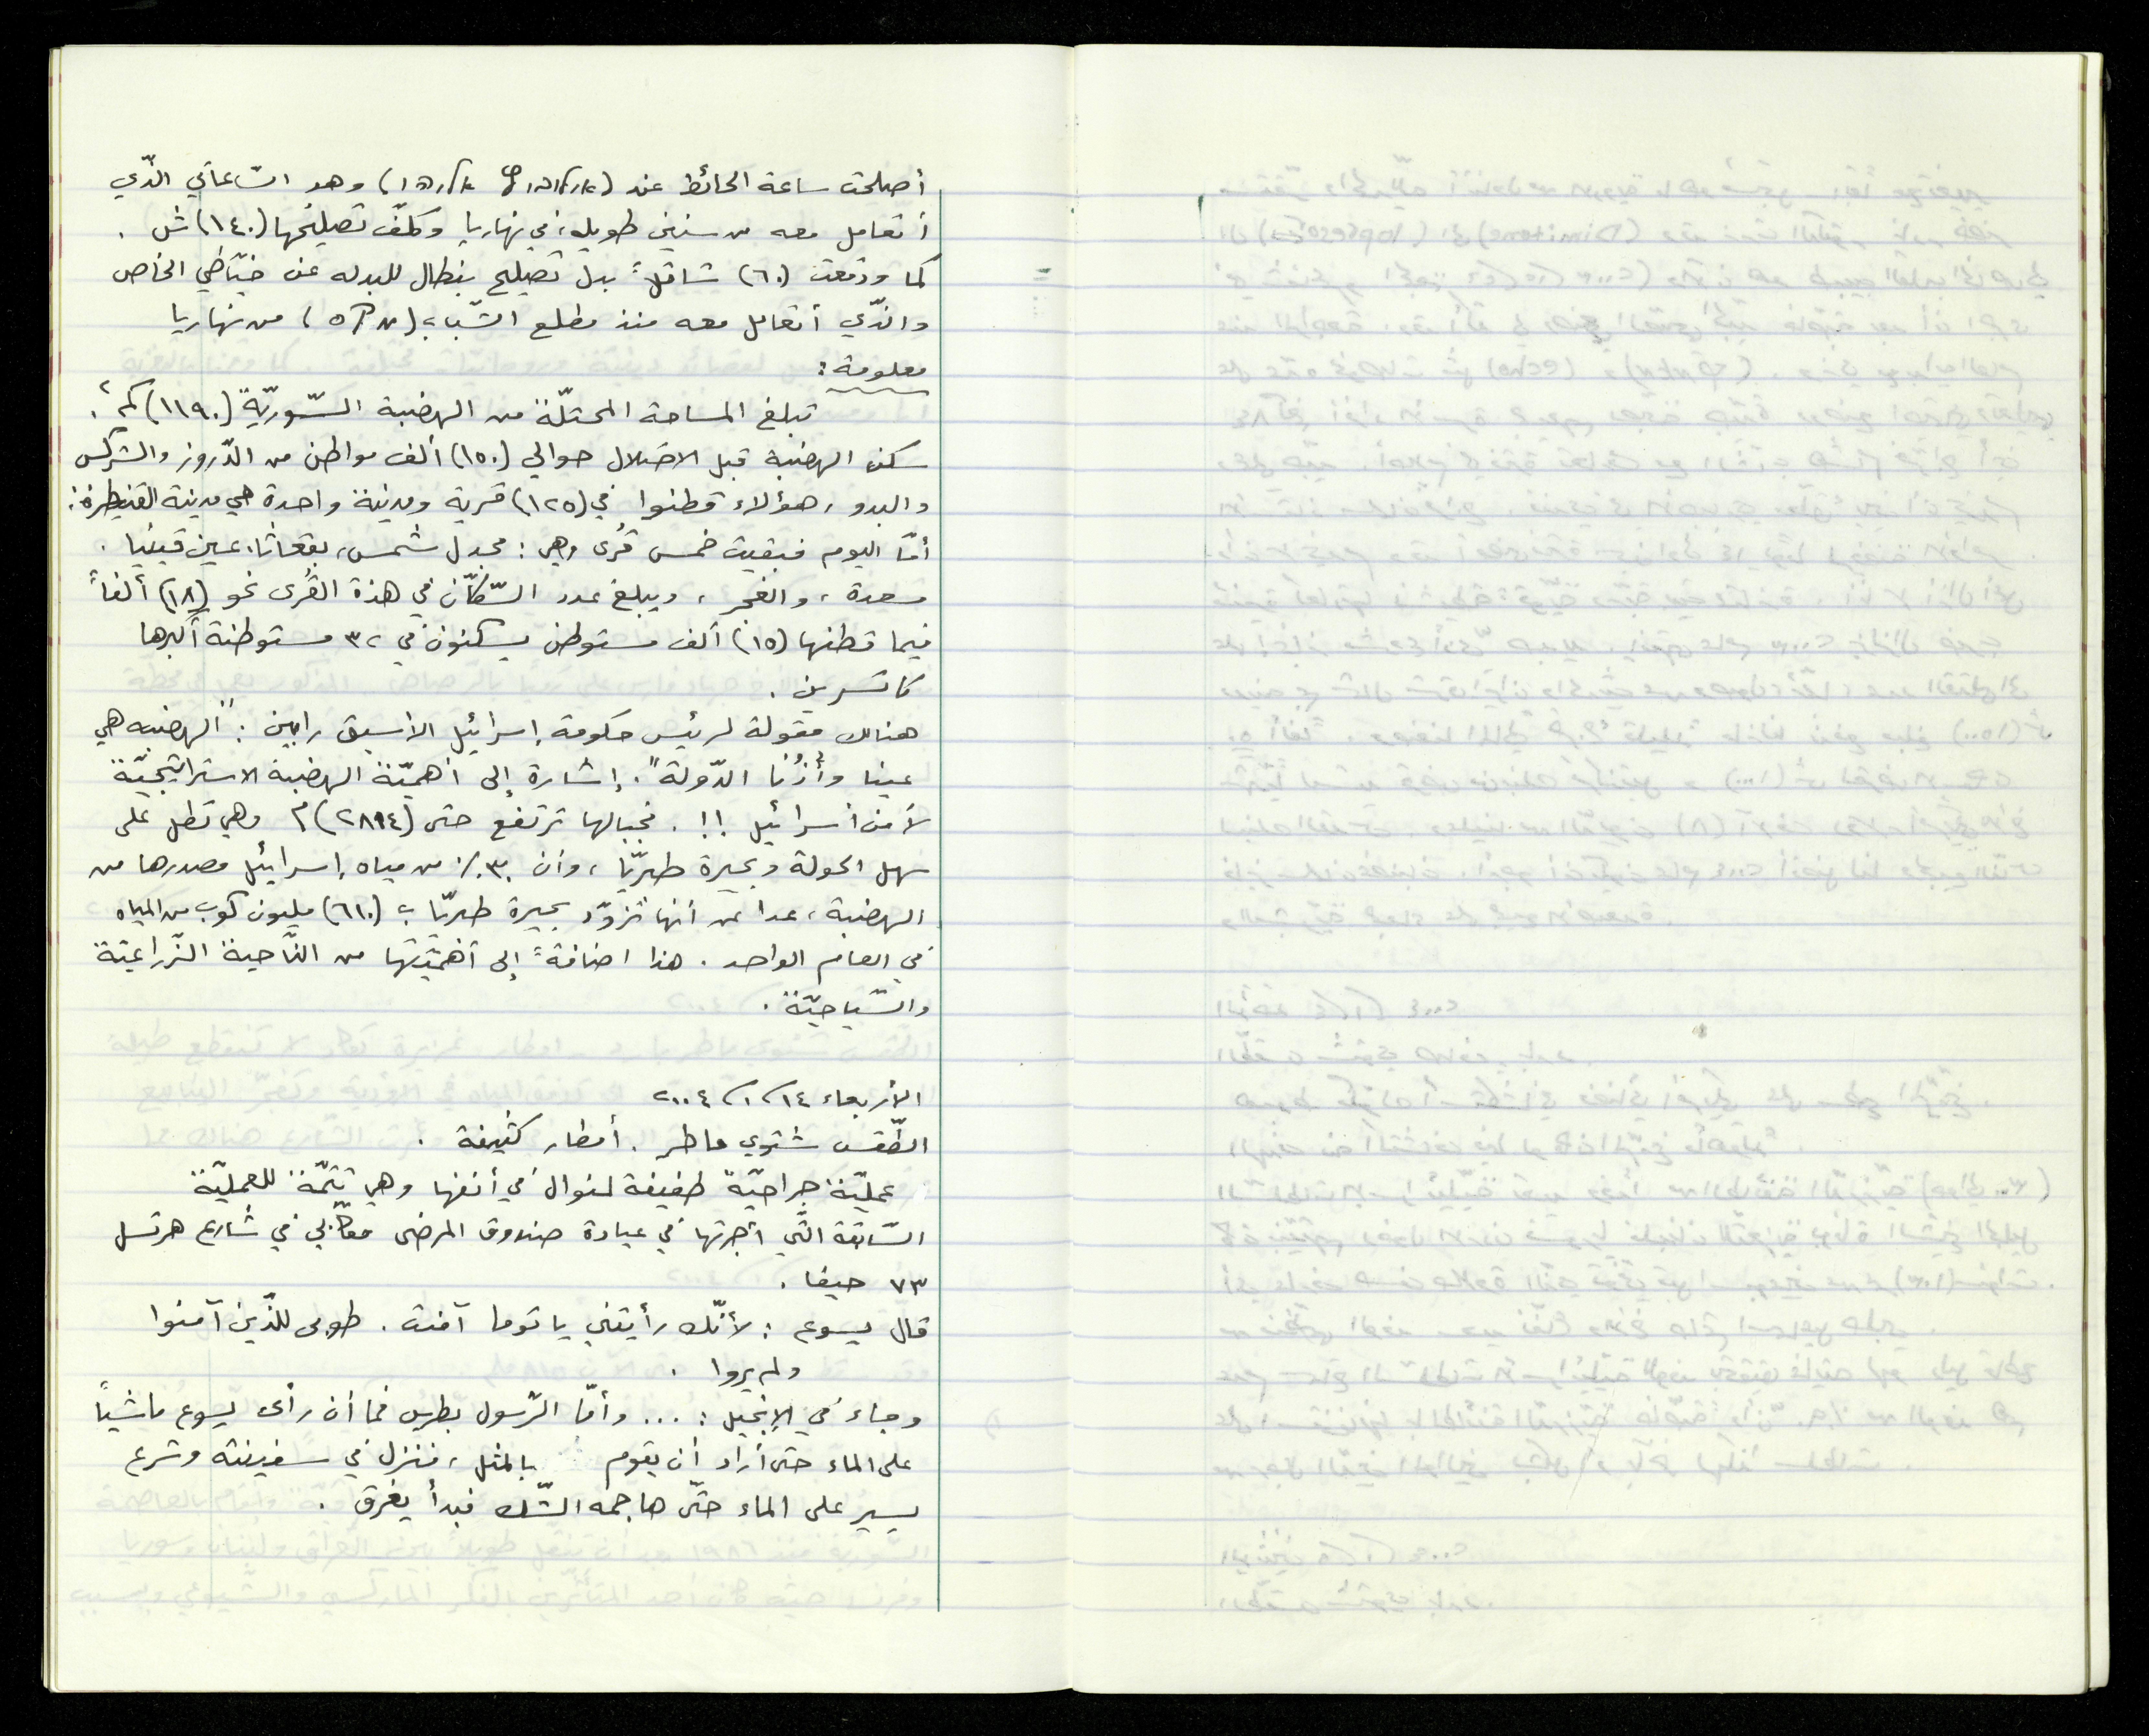 أصلحت ساعة الحائط عند وهو السّاعاتي الذّي
أتعامل معه من سنين طويلة، في نهاريا وكلّف تصليحها (١٤٠) ش .
كما ودفعت (٦٠) شاقلاً بدل تصليح بنطال للبدله عند خيّاطي الخاص
والذّي أتعامل معه منذ مطلع الشّباب من نهاريا
معلومة :
تبلغ المساحة المحتلّة من الهضبة السّوريّة (١١٩٠) كم٢ .
سكن الهضبة قبل الاحتلال حوالي (١٥٠) ألف مواطن من الدّروز والشركس
والبدو ، هؤلاء قطنوا في (١٢٥) قرية ومدينة واحدة هي مدينة القنيطرة :
أمّا اليوم فبقيت خمس قُرى وهي : مجدل شمس، بقعاثا، عين قينيا .
مسعدة ، والغجر ، ويبلغ عدد السّكّان في هذة القُرى نحو (١٨) ألفاً
فيما قطنها (١٥) ألف مستوطن يسكنون في ٣٢ مستوطنة أكبرها
كاتسرين .
هنالك مقولة لرئيس حكومة إسرائيل الأسبق رابين : "الهضبه هي
عينا وأُذُنا الدّولة" . إشارة إلى أهميّة الهضبة الاستراتيجيّة
لأمن أسرائيل !! . فجبالها ترتفع حتى (٢٨١٤) م وهي تطل على
سهل الحولة وبحيرة طبريّا ، وأن ٣٠٪ من مياه إسرائيل مصدرها من
الهضبة ، عدا عن أنها تزوّد بحيرة طبريّا ب (٦١٠) مليون كوب من المياه
في العام الواحد . هذا اضافةً إلى أهميّتها من النّاحية الزّراعيّة
والسّياحيّة .
الأربعاء ١٤/١/٢٠٠٤
الطّقس شتوي ماطر . أمطار كثيفة .
عمليّة جراحيّة طفيفة لنوال في أنفها وهي تتمّة للعمليّة
السّابقة التّي أجرتها في عيادة صندوق المرضى مكّابي في شارع هرتسل
٧٣ حيفا .
قال يسوع : لأنّك رأيتني يا توما آمنت . طوبى للذّين آمنوا
ولم يروا .
وجاء في الإنجيل : ... وأمّا الرّسول بطرس فما أن رأى يسوع ماشياً
على الماء حتى أراد أن يقوم بالمثل ، فنزل في سفينته وشرع
يسير على الماء حتّى هاجمه الشّك فبدأ يغرق .